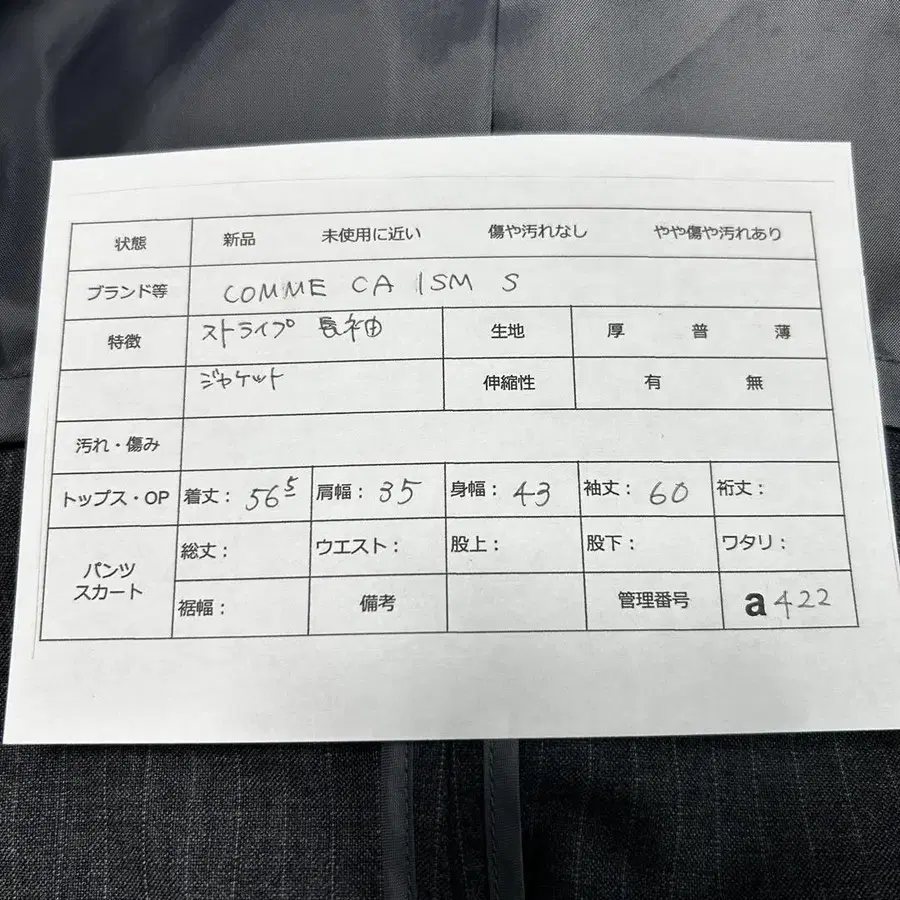 状態 新品 未使用に近い 傷や汚れなし やや傷や汚れあり
ブランド等 COMME CA ISM S
特徴 ストライプ 長袖 生地 厚 普 薄
ジャケット 伸縮性 有 無
汚れ・傷み
トップス・OP 着丈： 56⁵ 肩幅： 35 身幅： 43 袖丈： 60 裄丈：
パンツ スカート 総丈： ウエスト： 股上： 股下： ワタリ：
裾幅： 備考 管理番号 a422